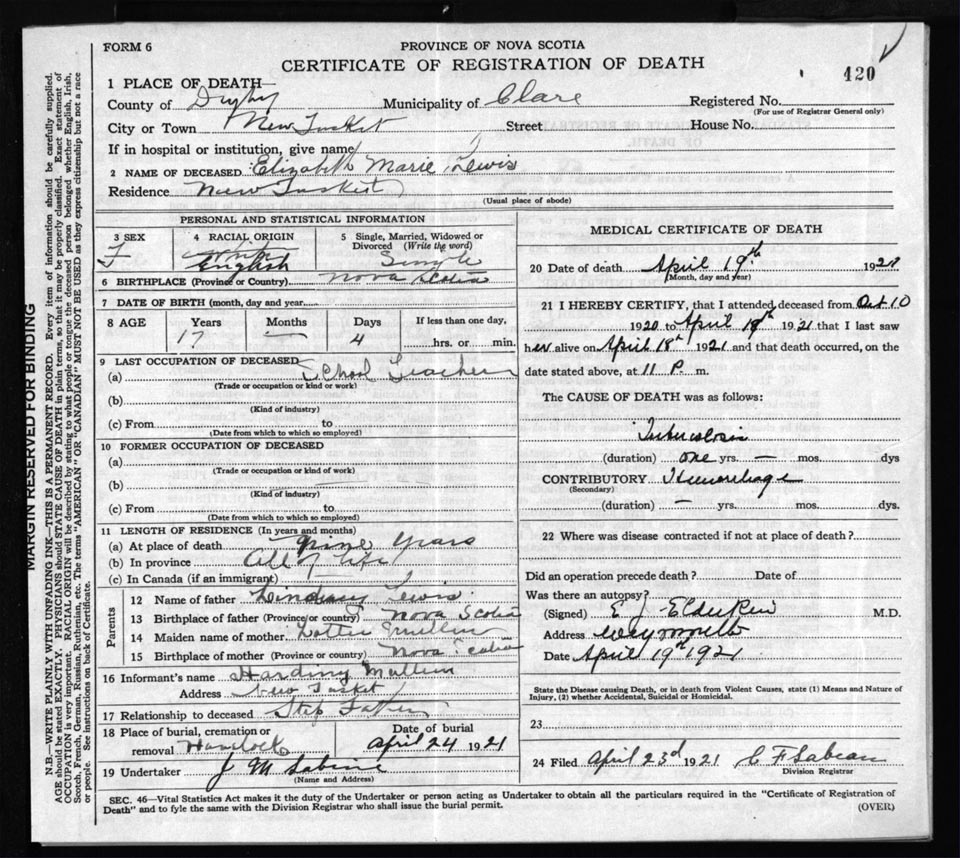 FORM 6
PROVINCE OF NOVA SCOTIA
CERTIFICATE OF REGISTRATION OF DEATH
420
1 PLACE OF DEATH
County of Digby Municipality of Clare Registered No.
(For use of Registrar General only)
City or Town New Tusket Street House No.
If in hospital or institution, give name
2 NAME OF DECEASED Elizabeth Marie Lewis
Residence New Tusket
(Usual place of abode)
PERSONAL AND STATISTICAL INFORMATION
3 SEX
F
4 RACIAL ORIGIN
White
English
5 Single, Married, Widowed or Divorced (Write the word)
Single
6 BIRTHPLACE (Province or Country) Nova Scotia
7 DATE OF BIRTH (month, day and year)
8 AGE Years Months Days If less than one day,
17 — 4 hrs. or min.
9 LAST OCCUPATION OF DECEASED
(a) School Teacher
(Trade or occupation or kind of work)
(b)
(Kind of industry)
(c) From to
(Date from which to which so employed)
10 FORMER OCCUPATION OF DECEASED
(a)
(Trade or occupation or kind of work)
(b)
(Kind of industry)
(c) From to
(Date from which to which so employed)
11 LENGTH OF RESIDENCE (In years and months)
(a) At place of death Nine Years
(b) In province All of life
(c) In Canada (if an immigrant)
Parents
12 Name of father Lindsay Lewis
13 Birthplace of father (Province or country) Nova Scotia
14 Maiden name of mother Mullen
15 Birthplace of mother (Province or country) Nova Scotia
16 Informant's name Harding Mullen
Address New Tusket
17 Relationship to deceased Step Father
18 Place of burial, cremation or removal Havelock
Date of burial April 24 1921
19 Undertaker J M Sabine
(Name and Address)
MEDICAL CERTIFICATE OF DEATH
20 Date of death April 19th 1921
(Month, day and year)
21 I HEREBY CERTIFY, that I attended deceased from Oct 10
1920 to April 18th 1921 that I last saw
her alive on April 18th 1921 and that death occurred, on the
date stated above, at 11 P. m.
The CAUSE OF DEATH was as follows:
Tuberculosis
(duration) one yrs. — mos. dys
CONTRIBUTORY Hemorrhage
(Secondary)
(duration) — yrs. mos. dys.
22 Where was disease contracted if not at place of death?
Did an operation precede death? Date of
Was there an autopsy?
(Signed) E J Elderkin M.D.
Address Weymouth
Date April 19th 1921
State the Disease causing Death, or in death from Violent Causes, state (1) Means and Nature of
Injury, (2) whether Accidental, Suicidal or Homicidal.
23
24 Filed April 23rd 1921 C F Sabean
Division Registrar
SEC. 46—Vital Statistics Act makes it the duty of the Undertaker or person acting as Undertaker to obtain all the particulars required in the "Certificate of Registration of
Death" and to fyle the same with the Division Registrar who shall issue the burial permit.
(OVER)
MARGIN RESERVED FOR BINDING
N.B.—WRITE PLAINLY WITH UNFADING INK—THIS IS A PERMANENT RECORD. Every item of information should be carefully supplied.
AGE should be stated EXACTLY. PHYSICIANS should STATE CAUSE OF DEATH in plain terms, so that it may be properly classified. Exact statement of
OCCUPATION is very important. RACIAL ORIGIN will be described by stating to what people or tongue the deceased person belonged whether English, Irish,
Scotch, French, German, Russian, Ruthenian, etc. The terms "AMERICAN" OR "CANADIAN" MUST NOT BE USED as they express citizenship but not a race
or people. See instructions on back of Certificate.